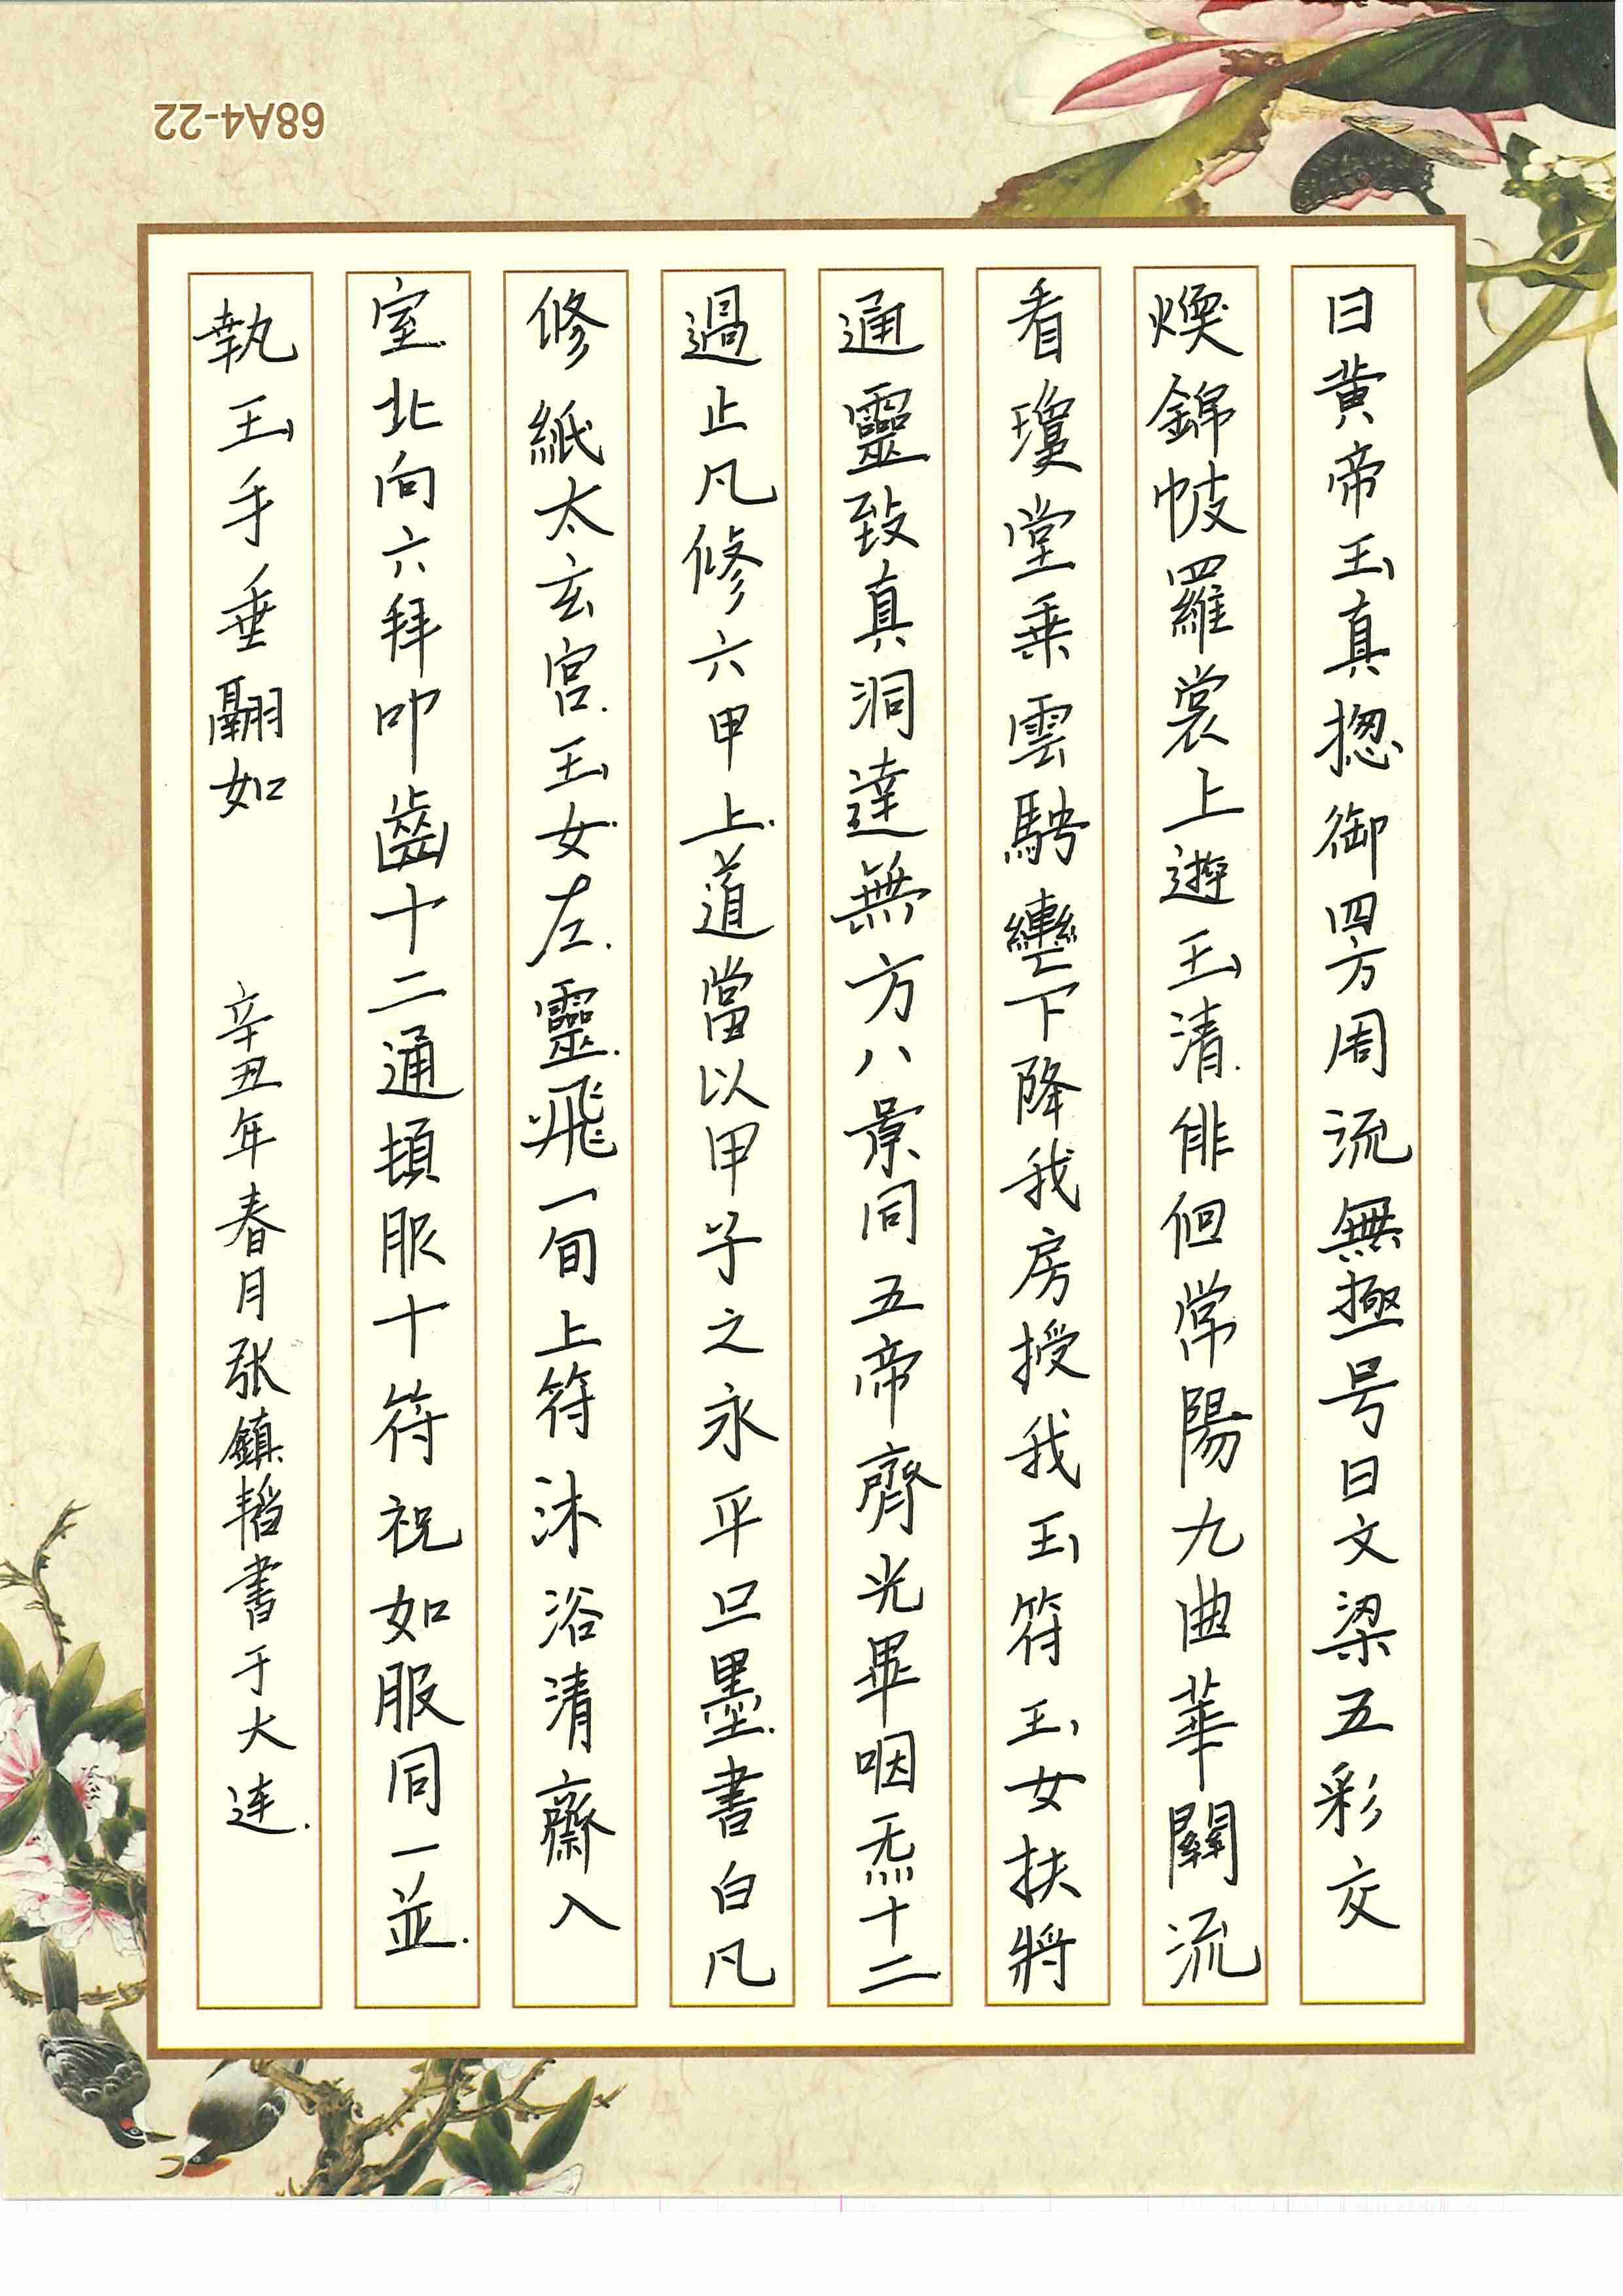 曰黃帝玉真揔御四方周流無極号曰文梁五彩交
煥錦帔羅裳上遊玉清徘徊常陽九曲華關流
看瓊堂乘雲駚轡下降我房授我玉符玉女扶將
通靈致真洞達無方八景同五帝齊光畢咽炁十二
過止凡修六甲上道當以甲子之永平旦墨書白凡
修紙太玄宮玉女左靈飛一旬上符沐浴清齋入
室北向六拜叩齒十二通頓服十符祝如服同一並
執玉手垂翮如
辛丑年春月张鎮韬書于大连
68A4-22